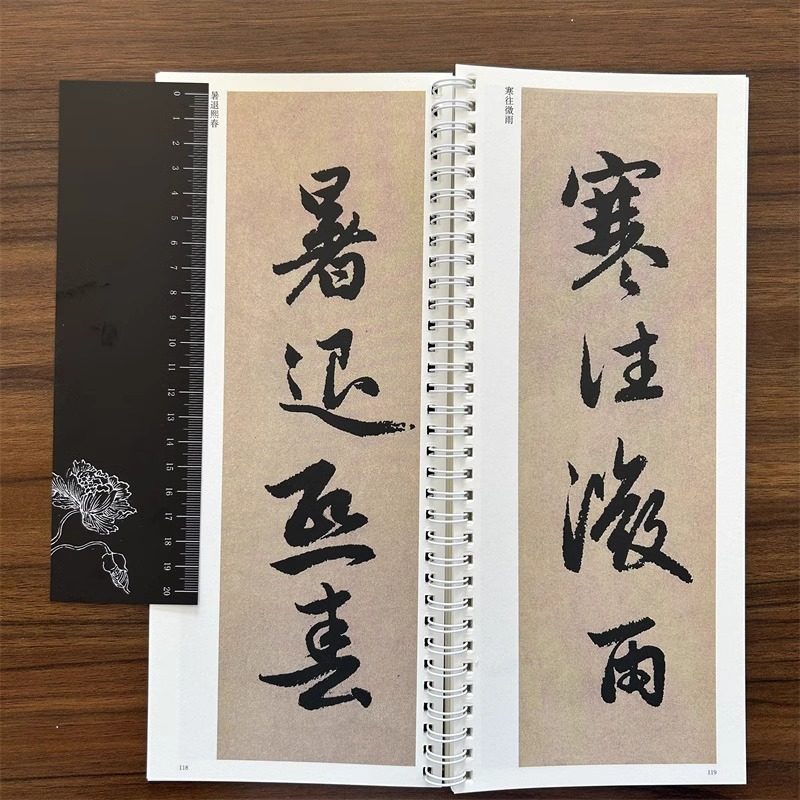 0 1 2 3 4 5 6 7 8 9 10 11 12 13 14 15 16 17 18 19 20
暑退熙春
暑退熙春
118
寒往微雨
寒往微雨
119